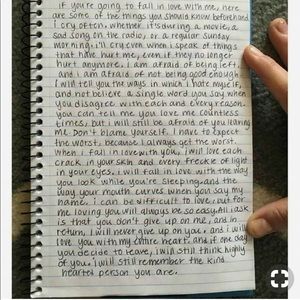 if you're going to fall in love with me, here
are some of the things you should know beforehand
i cry often, whether it's during a movie, a
sad song on the radio, or a regular sunday
morning. i'll cry even when i speak of things
that have hurt me, even if they no longer
hurt anymore. i am afraid of being left,
and i am afraid of not being good enough.
i will tell you the ways in which i hate myself,
and not believe a single word you say when
you disagree with each and every reason.
you can tell me you love me countless
times, but i will still be afraid of you leaving
me. Don't blame yourself. i have to expect
the worst, because i always get the worst.
when i fall in love with you, i will love each
crack in your skin and every freckle of light
in your eyes. i will fall in love with the way
you look while you're sleeping and the
way your mouth curves when you say my
name. i can be difficult to love, but for
me loving you will always be so easy. all i ask
is that you don't give up on me, and in
return, i will never give up on you. and i will
love you with my entire heart, and if one day
you decide to leave, i will still think highly
of you. i will still remember the kind
hearted person you are.